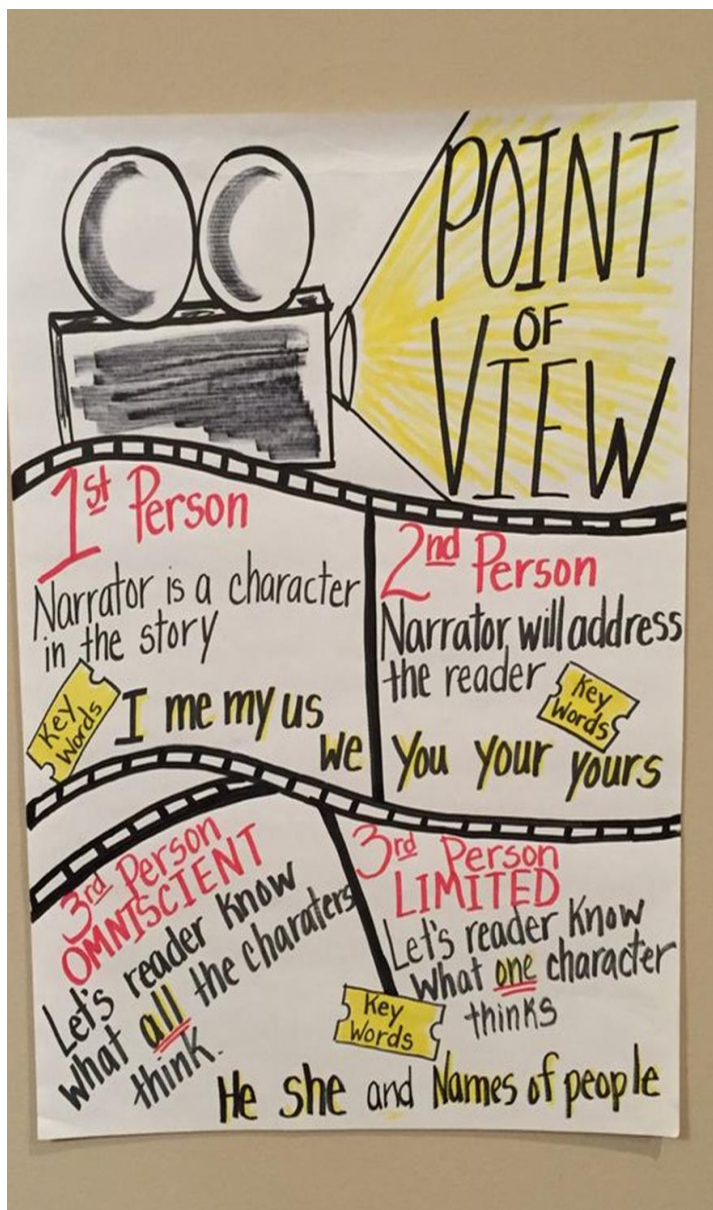 POINT
OF
VIEW
1st Person
Narrator is a character
in the story
Key
Words
I me my us
we
2nd Person
Narrator will address
the reader
Key
Words
You your yours
3rd Person
OMNISCIENT
Let's reader know
what all the charaters
think.
3rd Person
LIMITED
Let's reader know
what one character
thinks
Key
Words
He she and Names of people